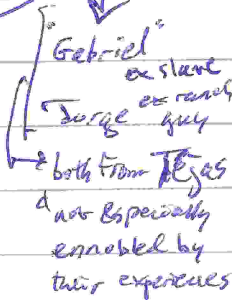 "Gabriel"
ex slave
Jorge ex ranch
guy
both from Tegas
& not especially
ennobled by
their experiences